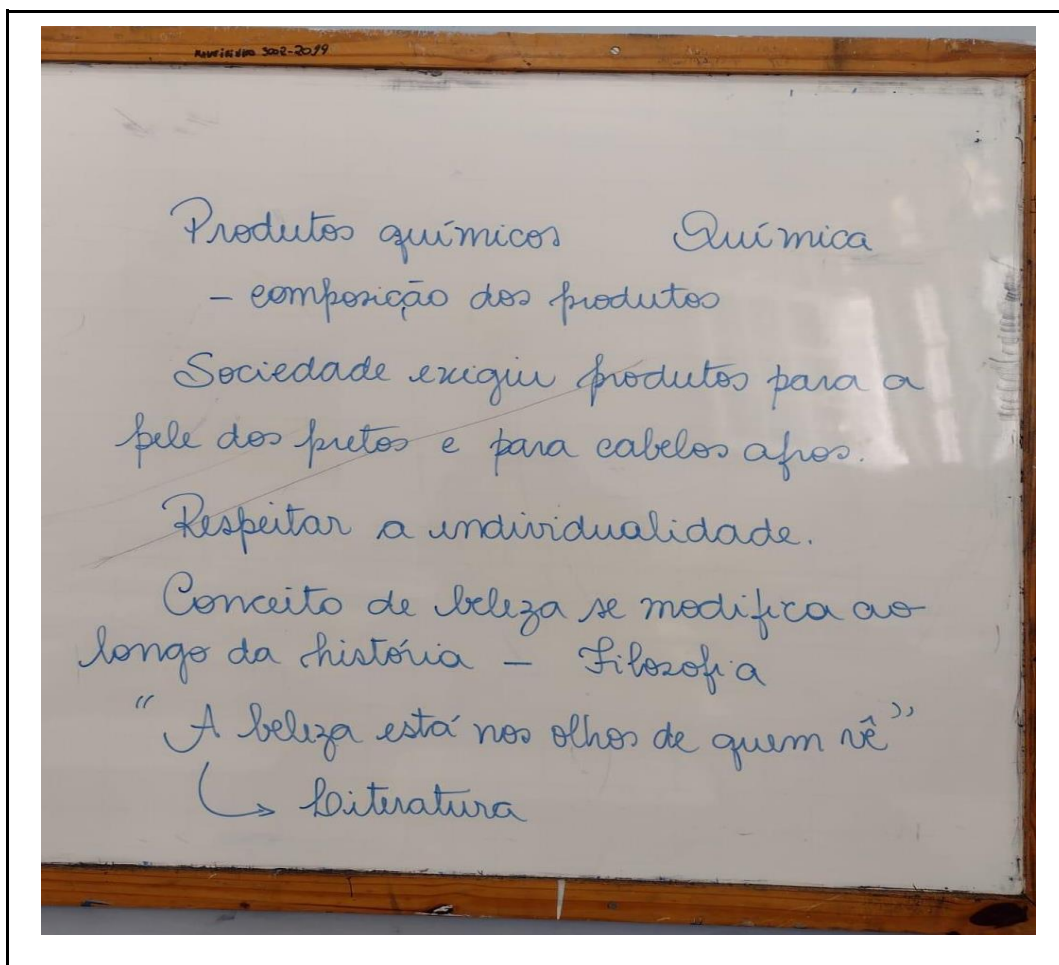 3002-2019
Produtos químicos Química
- composição dos produtos
Sociedade exigiu produtos para a
pele dos pretos e para cabelos afros.
Respeitar a individualidade.
Conceito de beleza se modifica ao
longo da história - Filosofia
"A beleza está nos olhos de quem vê"
Literatura